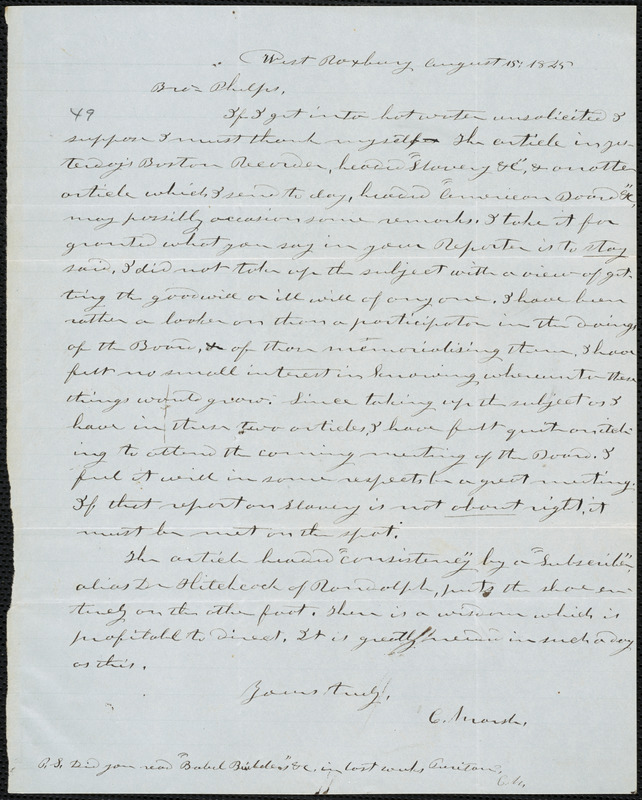 West Roxbury August 15, 1845
Bro= Phelps,
49
If I get into hot water unsolicited I
suppose I must thank myself. The article in yes-
terday's Boston Recorder, headed "Slavery &c", & another
article which I send to day, headed "American Board &c"
may possibly occasion some remarks. I take it for
granted what you say in your Reporter is to stay
said. I did not take up the subject with a view of get-
ting the goodwill or ill will of any one. I have been
rather a looker on than a participator in the doings
of the Board, & of those memorialising them, I have
felt no small interest in knowing whereunto these
things would grow. Since taking up the subject as I
have in these two articles, I have felt quite an itch-
ing to attend the coming meeting of the Board. I
feel it will in some respects be a great meeting.
If that report on Slavery is not about right, it
must be met on the spot.
The article headed "Consistency" by a "Subscriber",
alias Dr Hitchcock of Randolph, puts the shoe en-
tirely on the other foot. There is a wisdom which is
profitable to direct. It is greatly needed in such a day
as this.
Yours truly,
C. Marsh.
P.S. Did you read "Babel Builders" &c. in last weeks Puritan.
C. M.